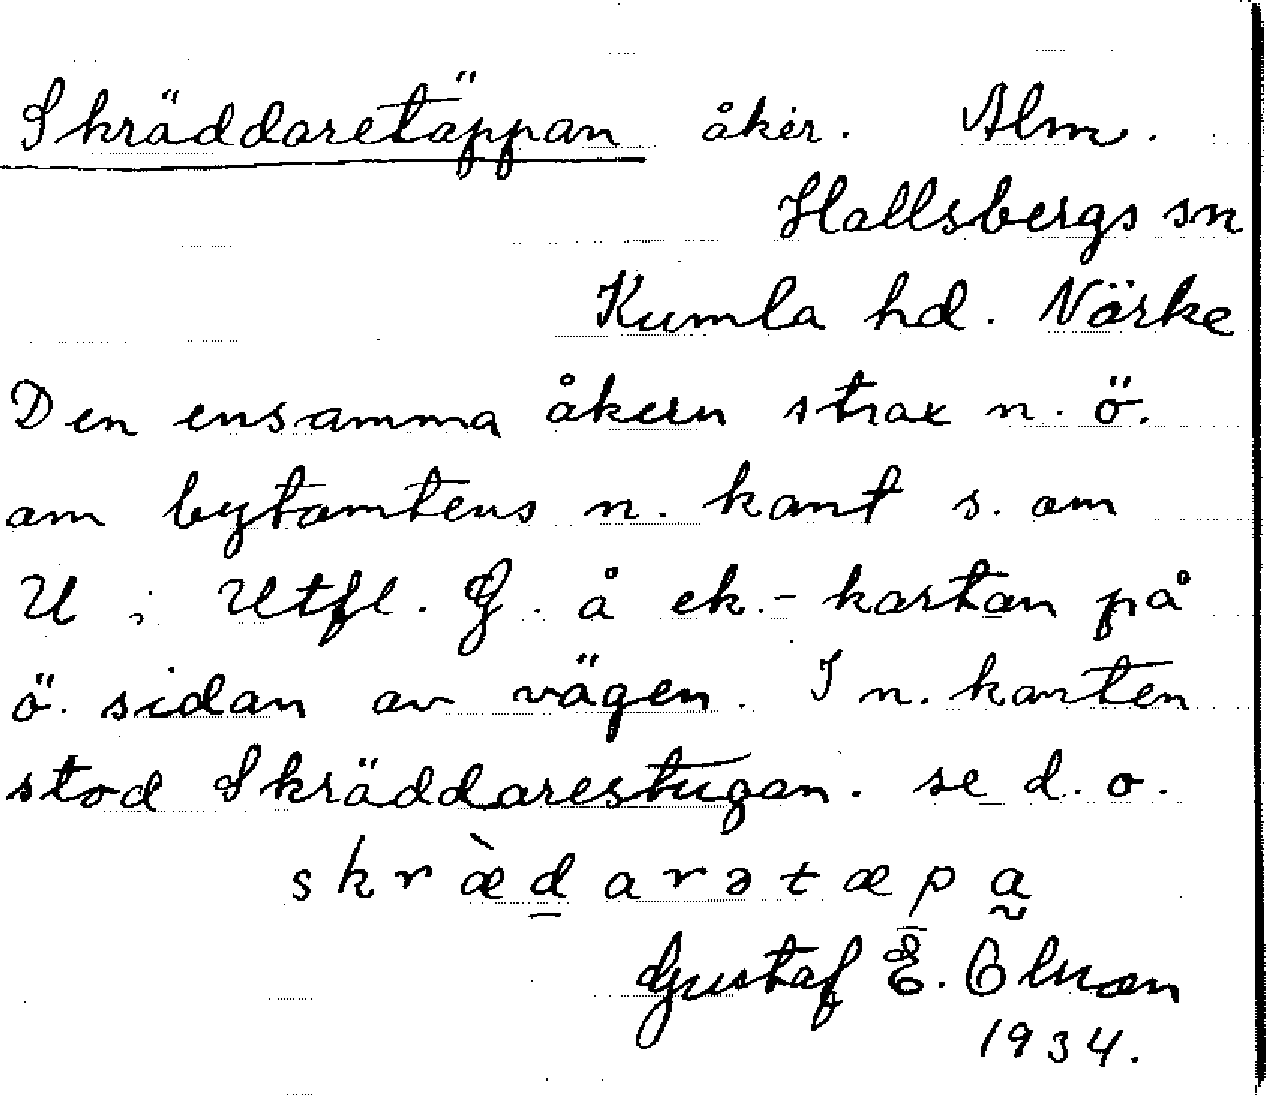 Skräddaretäppan åker. Alm.
Hallsbergs sn
Kumla hd. Närke
Den ensamma åkern strax n. ö.
om bytomtens n. kant s. om
U i Utfl. G. å ek.- kartan på
ö. sidan av vägen. I n. kanten
stod Skräddarestugan. se d. o.
skræ̀d̲arətæp̲a̰
Gustaf E. Olson
1934.